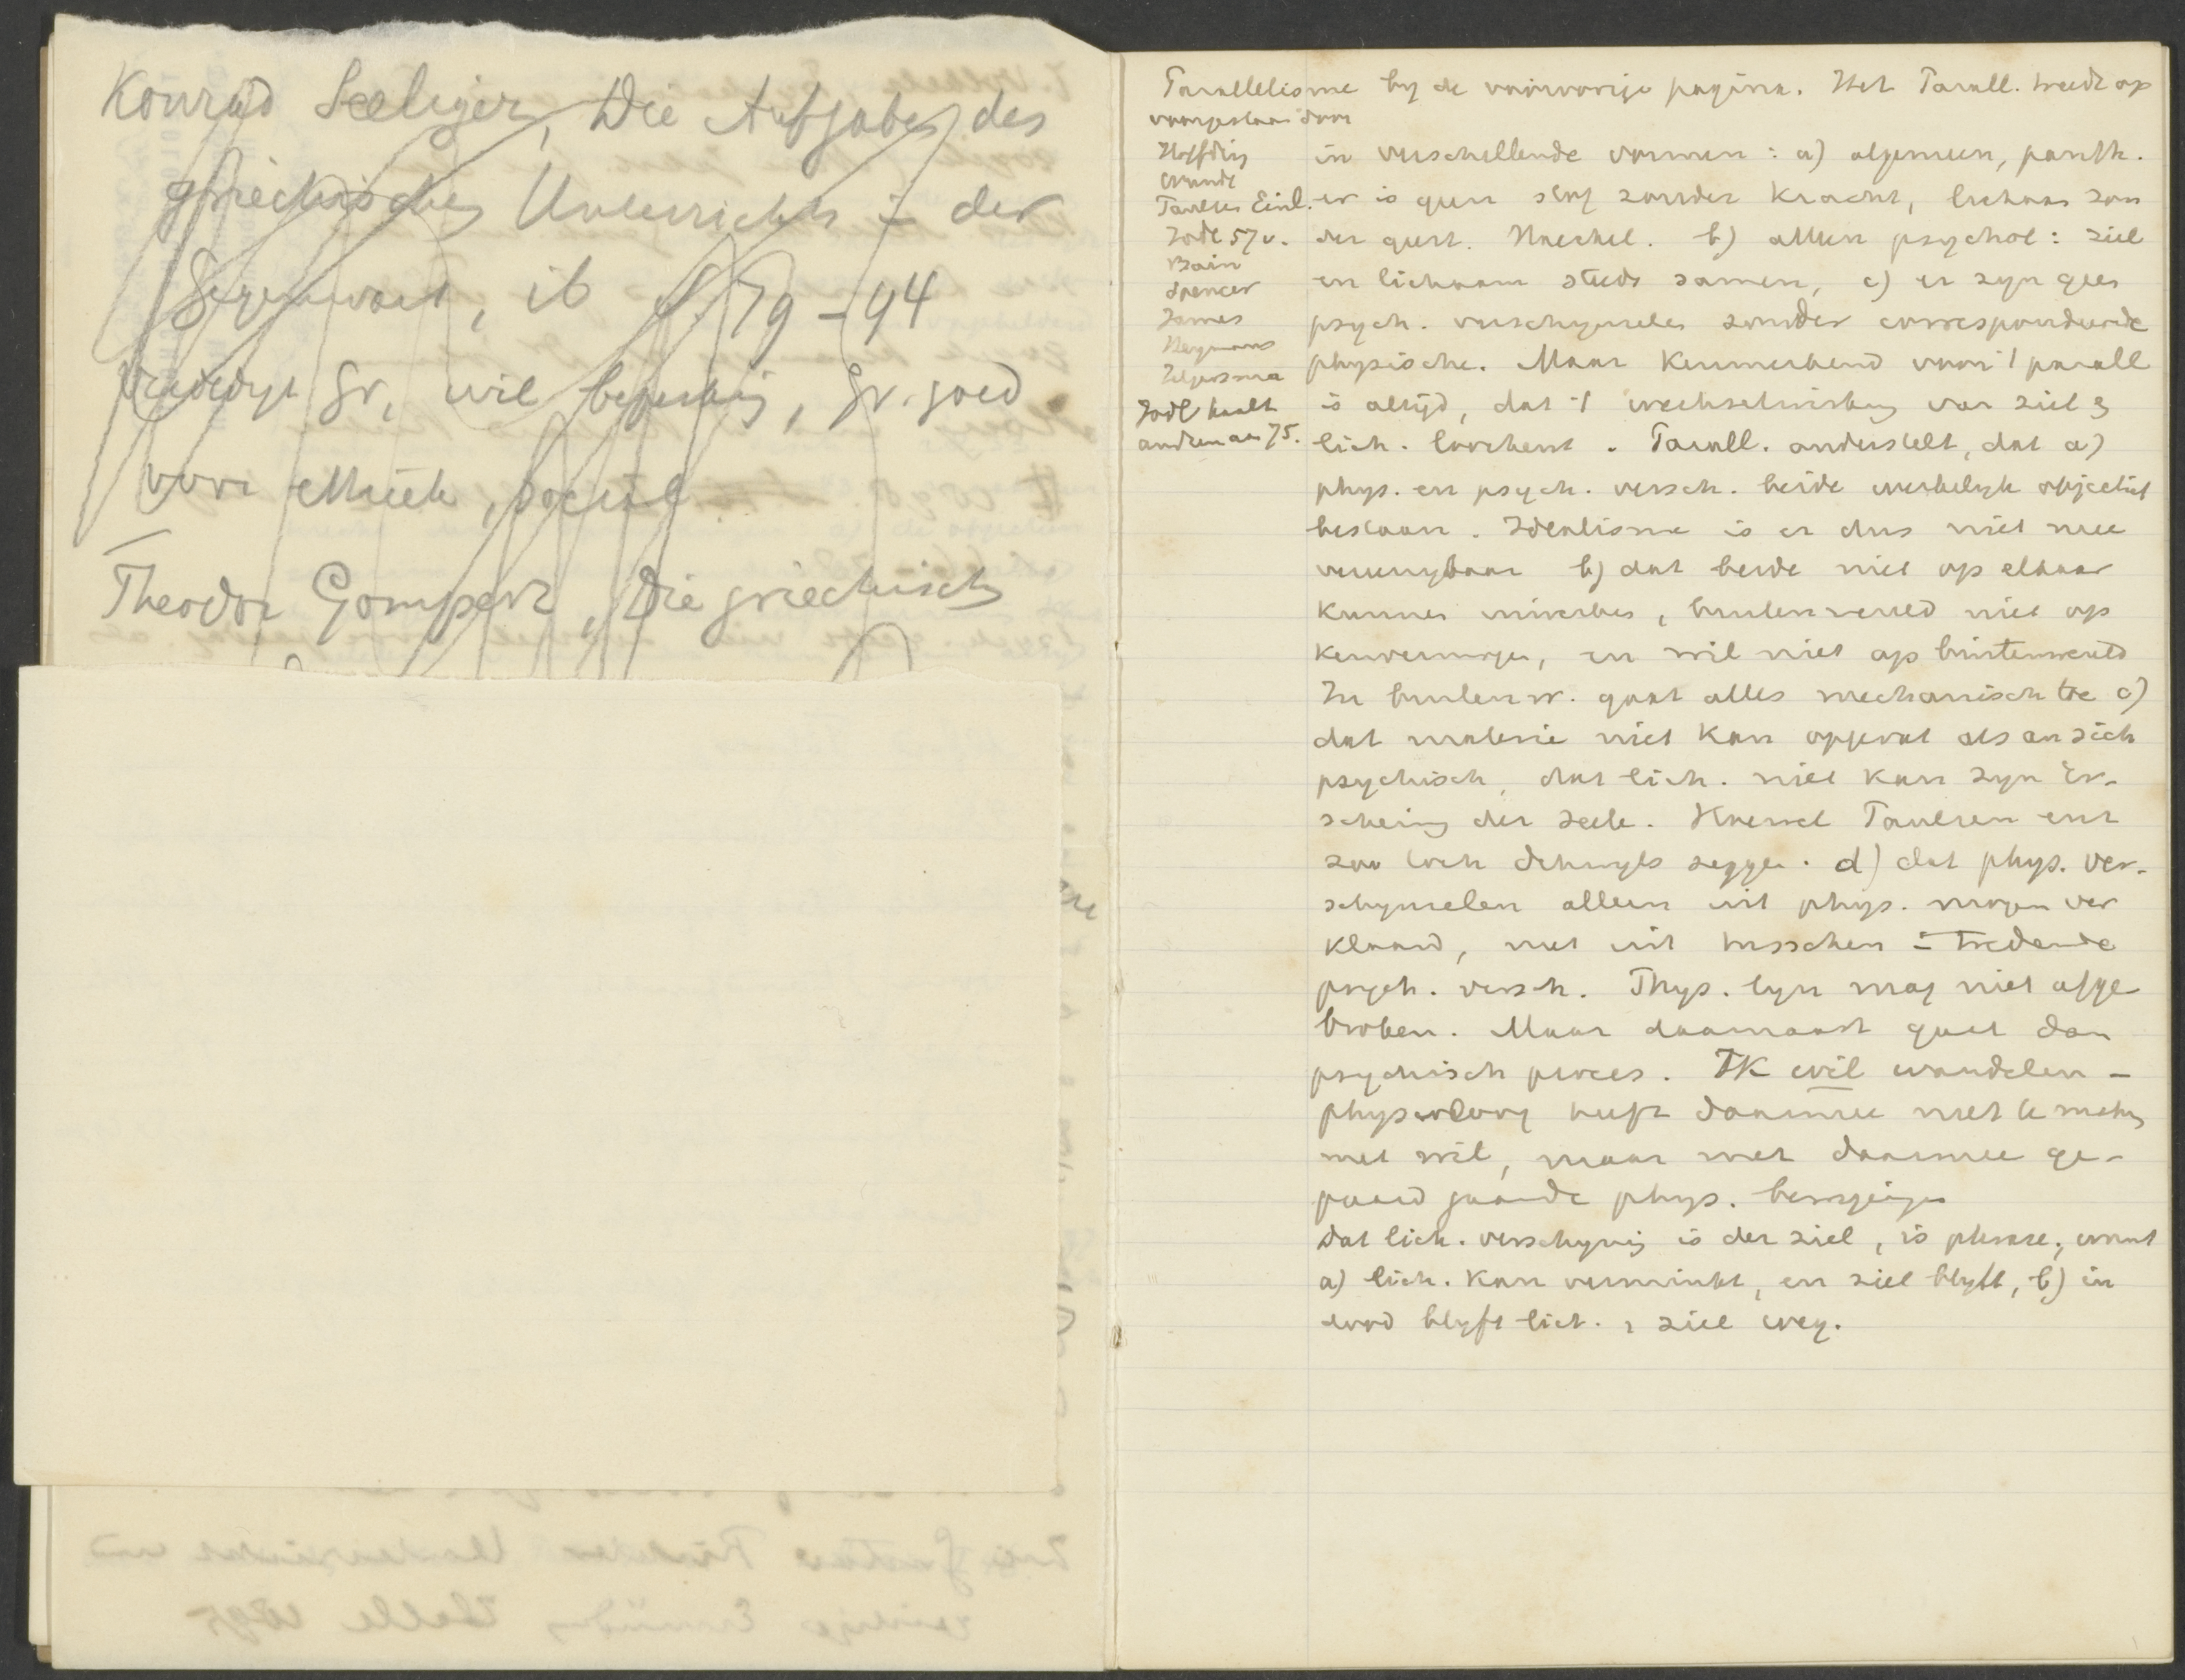 Konrad Seeliger, Die Aufgaben des
griechischen Unterrichts in der
Gegenwart, ib S. 79-94
verdedigt Gr, wil beperking, Gr. goed
voor ethiek, sociale
Theodor Gomperz, Die griechische
Parallelisme by de voorvorige pagina. Het Parall. treedt op
voorgestaan door
Höffding
Wundt
Paulsen Einl.
Jodl 57 v.
Bain
Spencer
James
Heymans
Zelfde
Jodl haalt
andren aan 75.
in verschillende vormen: a) algemeen, panth.
er is geen stof zonder kracht, lichaam zon
der geest. Haeckel. b) alleen psychol: ziel
en lichaam steeds samen, c) er zyn geen
psych. verschynselen zonder correspondeerende
physische. Maar kenmerkend voor 't parall
is altyd, dat 't wechselwirkung van ziel en
lich. loochent. Parall. onderstelt, dat a)
phys. en psych. versch. beide werkelyk objectief
bestaan. Idealisme is er dus niet mee
vereenigbaar b) dat beide niet op elkaar
kunnen inwerken, buitenwereld niet op
kenvermogen, en wil niet op buitenwereld
In buitenw. gaat alles mechanisch toe c)
dat materie niet kan opgevat als an sich
psychisch, dat lich. niet kan zyn Er-
scheinung der Seele. Haeckel Paulsen enz
zoo toch dikwyls zeggen. d) dat phys. ver-
schynselen alleen uit phys. mogen ver
klaard, niet uit tusschen in tredende
psych. versch. Phys. lyn mag niet afge
broken. Maar daarnaast gaat dan
psychisch proces. IK wil wandelen -
physioloog heeft daarmee niet te maken
met wil, maar met daarmee ge-
paard gaande phys. bewegingen
dat lich. verschyning is der ziel, is phrase, want
a) lich. kan verminkt, en ziel blyft, b) in
dood blyft lich. en ziel weg.